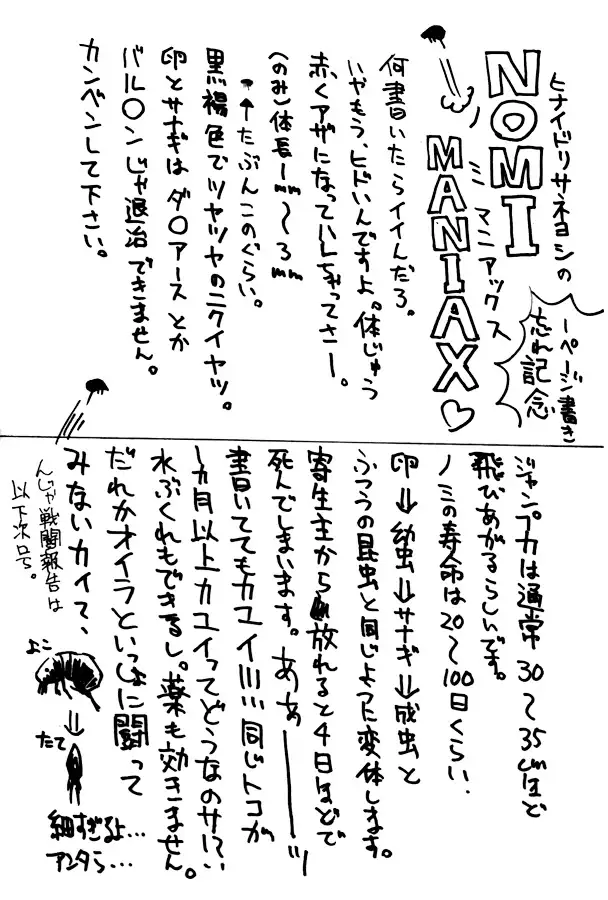 ヒナイドリサネヨシの
NOMI
ミ マニアックス
MANIAX♡
一ページ書き
忘れ記念
何書いたらイイんだろ。
いやもう、ヒドいんですよ。体じゅう
赤くアザになっていしちゃってさー。
(のみ)体長1mm〜3mm
・↑たぶんこのぐらい。
黒褐色でツヤツヤのニクイヤツ。
卵とサナギはダ〇アースとか
バル〇ンじゃ退治できません。
カンベンして下さい。
ジャンプ力は通常30〜35cmほど
飛びあがるらしいです。
ノミの寿命は20〜100日くらい.
卵⇒幼虫⇒サナギ⇒成虫と
ふつうの昆虫と同じように変体します。
寄生主から放れると4日ほどで
死んでしまいます。あぁーーッ
書いててもカユイ!!!!!同じトコが
1ヵ月以上カユイってどうなのサ!?
水ぶくれもできるし。薬も効きません。
だれかオイラといっしょに闘って
みないカイ?、
んじゃ戦闘報告は
以下次口ち。
よこ
⇓
たて
細すぎるよ…
アンタら…